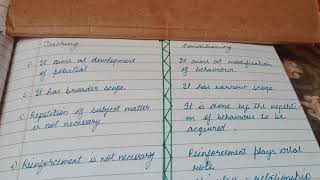 Teaching
Conditioning
It aims at development
of potential
It aims at modification
of behaviour.
It has broader scope.
It has narrow scope.
Repetition of subject matter
is not necessary
It is done by the repetiti
on of behaviour to be
acquired.
Reinforcement is not necessary
Reinforcement plays vital
role.
relationship